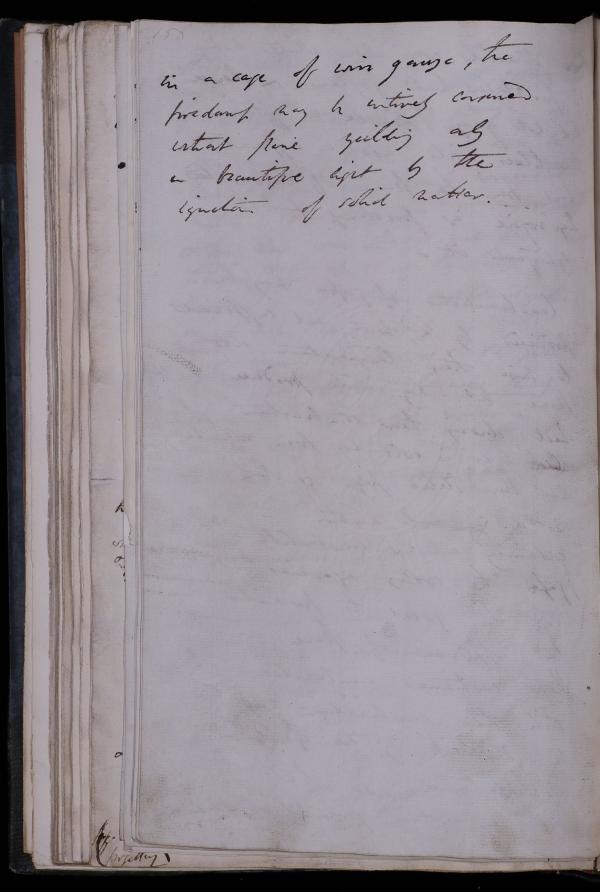 157
in a cage of wire gauze, the
firedamp may be entirely consumed
without flame yielding only
a beautiful light by the
ignition of solid matter.